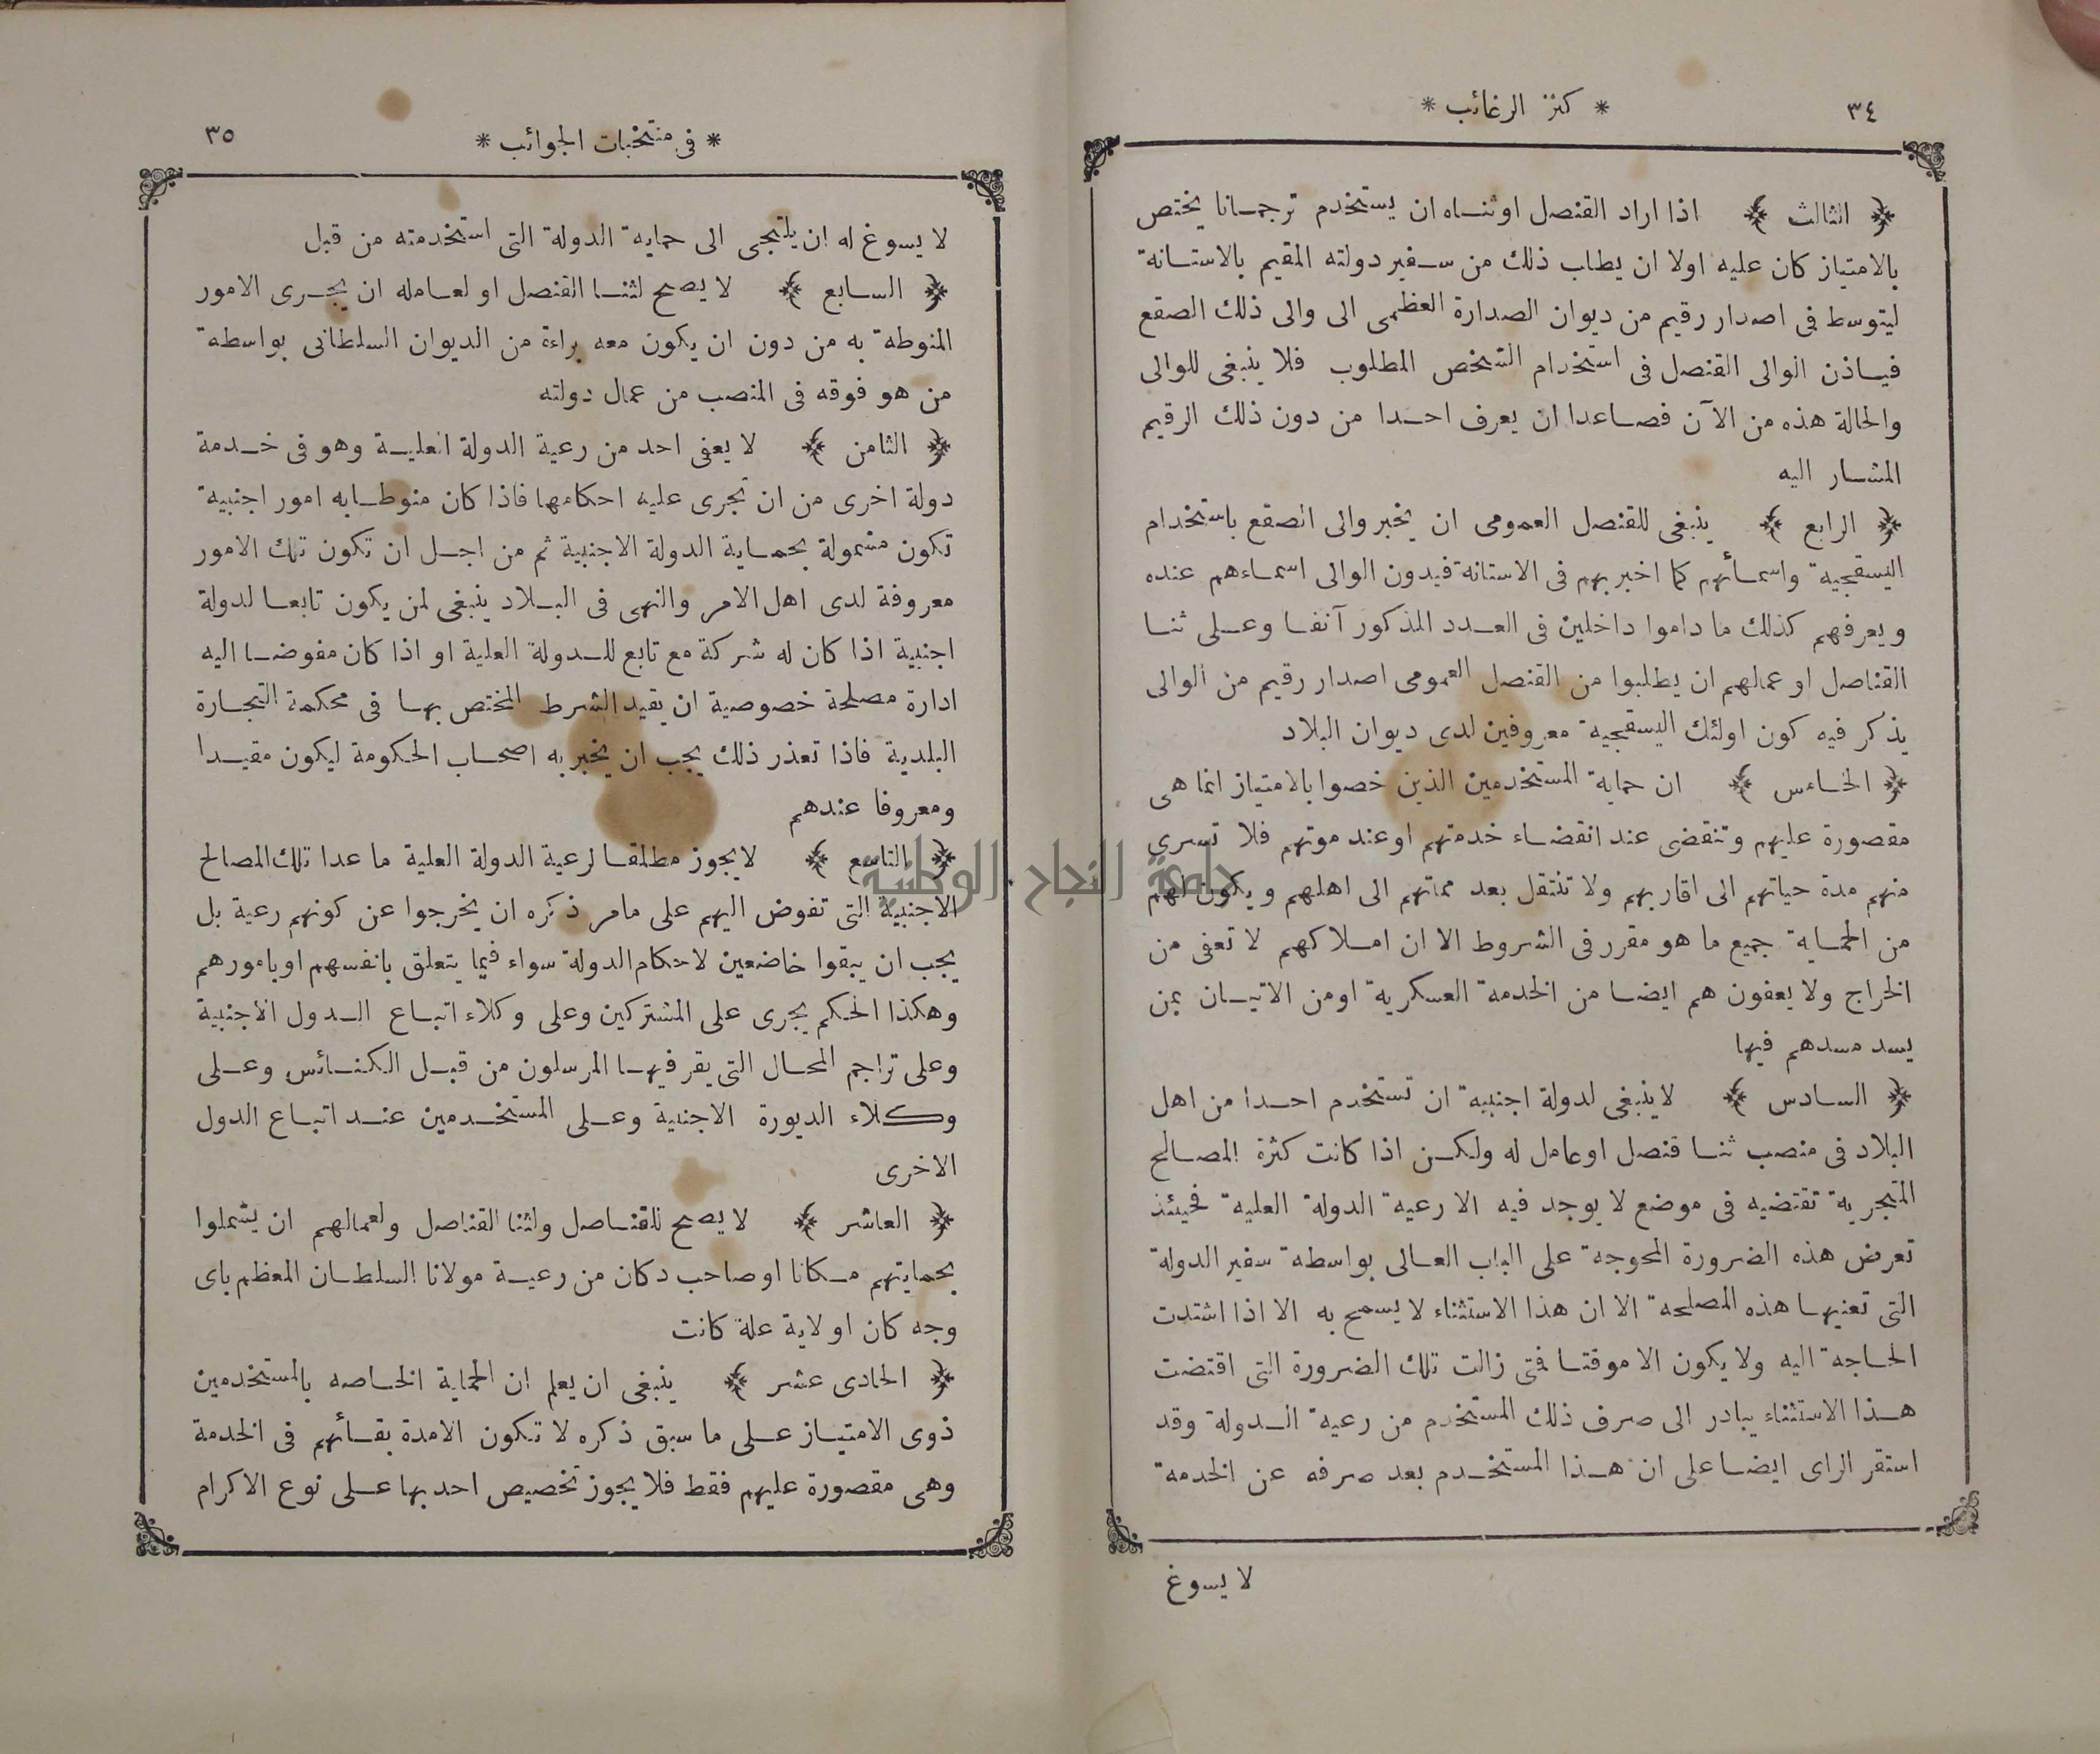 ٣٤
* كنز الرغائب *
﴿ الثالث ﴾ اذا اراد القنصل اوثناه ان يستخدم ترجمانا يختص
بالامتياز كان عليه اولا ان يطاب ذلك من سفير دولته المقيم بالاستانة
ليتوسط فى اصدار رقيم من ديوان الصدارة العظمى الى والى ذلك الصقع
فياذن الوالى القنصل فى استخدام الشخص المطلوب فلا ينبغى للوالى
والحالة هذه من الآن فصاعدا ان يعرف احدا من دون ذلك الرقيم
المشار اليه
﴿ الرابع ﴾ ينبغى للقنصل العمومى ان يخبر والى الصقع باستخدام
اليسقجية واسمائهم كما اخبر بهم فى الاستانة فيدون الوالى اسماءهم عنده
ويعرفهم كذلك ما داموا داخلين فى العدد المذكور آنفا وعلى ثنا
القناصل او عمالهم ان يطلبوا من القنصل العمومى اصدار رقيم من الوالى
يذكر فيه كون اولئك اليسقجية معروفين لدى ديوان البلاد
﴿ الخامس ﴾ ان حماية المستخدمين الذين خصوا بالامتياز انما هى
مقصورة عليهم وتنقضى عند انقضاء خدمتهم اوعند موتهم فلا تسرى
منهم مدة حياتهم الى اقاربهم ولا تنتقل بعد مماتهم الى اهلهم ويكون لهم
من الحماية جميع ما هو مقرر فى الشروط الا ان املاكهم لا تعفى من
الخراج ولا يعفون هم ايضا من الخدمة العسكرية اومن الاتيان بمن
يسد مسدهم فيها
﴿ السادس ﴾ لاينبغى لدولة اجنبية ان تستخدم احدا من اهل
البلاد فى منصب ثنا قنصل اوعامل له ولكن اذا كانت كثرة المصالح
المتجرية تقتضيه فى موضع لا يوجد فيه الا رعية الدولة العلية فحينئذ
تعرض هذه الضرورة المحوجة على الباب العالى بواسطة سفير الدولة
التى تعنيها هذه المصلحة الا ان هذا الاستثناء لا يسمح به الا اذا اشتدت
الحاجة اليه ولا يكون الا موقتا فمتى زالت تلك الضرورة التى اقتضت
هذا الاستثناء يبادر الى صرف ذلك المستخدم من رعية الدولة وقد
استقر الراى ايضا على ان هذا المستخدم بعد صرفه عن الخدمة
لا يسوغ
* فى منتخبات الجوائب *
٣٥
لا يسوغ له ان يلتجى الى حماية الدولة التى استخدمته من قبل
﴿ السابع ﴾ لا يصح لثنا القنصل او لعامله ان يجرى الامور
المنوطة به من دون ان يكون معه براءة من الديوان السلطانى بواسطة
من هو فوقه فى المنصب من عمال دولته
﴿ الثامن ﴾ لا يعفى احد من رعية الدولة العلية وهو فى خدمة
دولة اخرى من ان تجرى عليه احكامها فاذا كان منوطا به امور اجنبية
تكون مشمولة بحماية الدولة الاجنبية ثم من اجل ان تكون تلك الامور
معروفة لدى اهل الامر والنهى فى البلاد ينبغى لمن يكون تابعا لدولة
اجنبية اذا كان له شركة مع تابع للدولة العلية او اذا كان مفوضا اليه
ادارة مصلحة خصوصية ان يقيد الشرط المختص بها فى محكمة التجارة
البلدية فاذا تعذر ذلك يجب ان يخبر به اصحاب الحكومة ليكون مقيدا
ومعروفا عندهم
﴿ التاسع ﴾ لايجوز مطلقا لرعية الدولة العلية ما عدا تلك المصالح
الاجنبية التى تفوض اليهم على مامر ذكره ان يخرجوا عن كونهم رعية بل
يجب ان يبقوا خاضعين لاحكام الدولة سواء فيما يتعلق بانفسهم اوبامورهم
وهكذا الحكم يجرى على المشتركين وعلى وكلاء اتباع الدول الاجنبية
وعلى تراجم المحال التى يقر فيها المرسلون من قبل الكنائس وعلى
وكلاء الديورة الاجنبية وعلى المستخدمين عند اتباع الدول
الاخرى
﴿ العاشر ﴾ لا يصح للقناصل ولثنا القناصل ولعمالهم ان يشملوا
بحمايتهم مكانا اوصاحب دكان من رعية مولانا السلطان المعظم باى
وجه كان او لاية علة كانت
﴿ الحادى عشر ﴾ ينبغى ان يعلم ان الحماية الخاصه بالمستخدمين
ذوى الامتياز على ما سبق ذكره لا تكون الامدة بقائهم فى الخدمة
وهى مقصورة عليهم فقط فلا يجوز تخصيص احد بها على نوع الاكرام
جامعة النجاح الوطنية